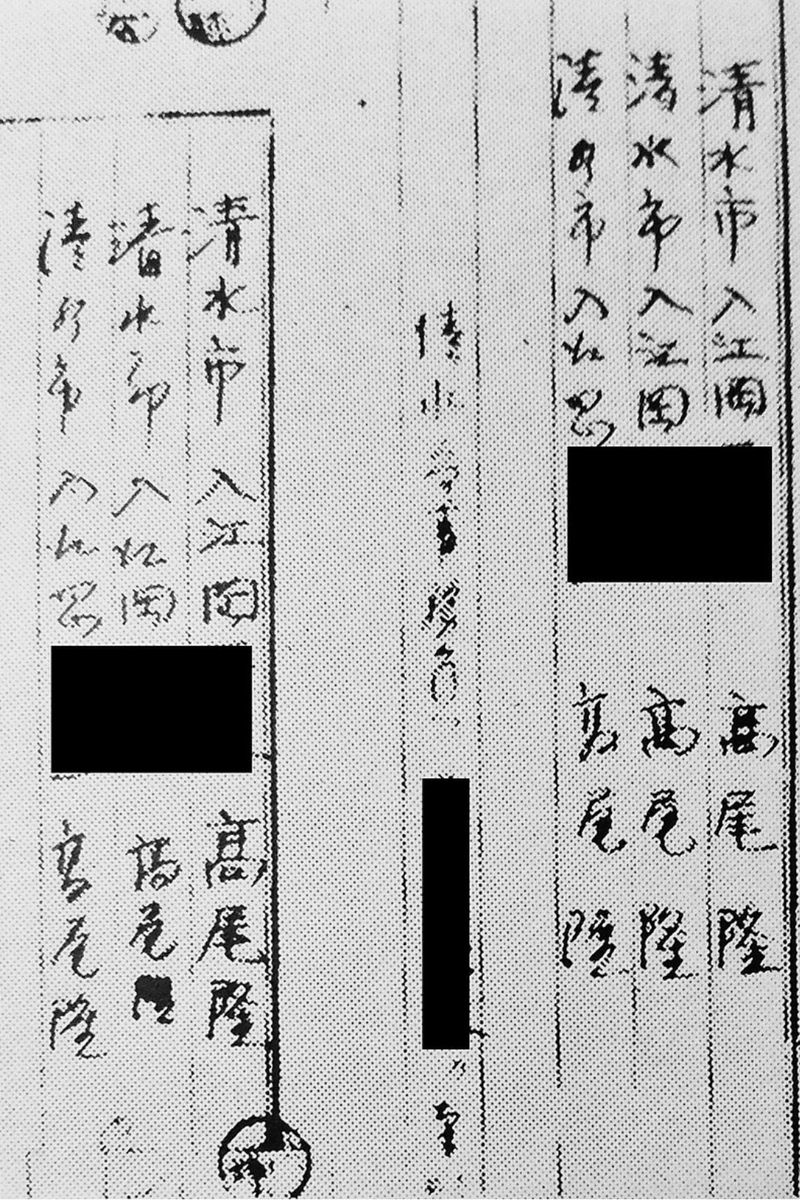 清水市入江岡
高尾隆
清水市入江岡
高尾隆
清水市入江岡
高尾隆
清水
清水市入江岡
高尾隆
清水市入江岡
高尾
清水市入江岡
高尾隆